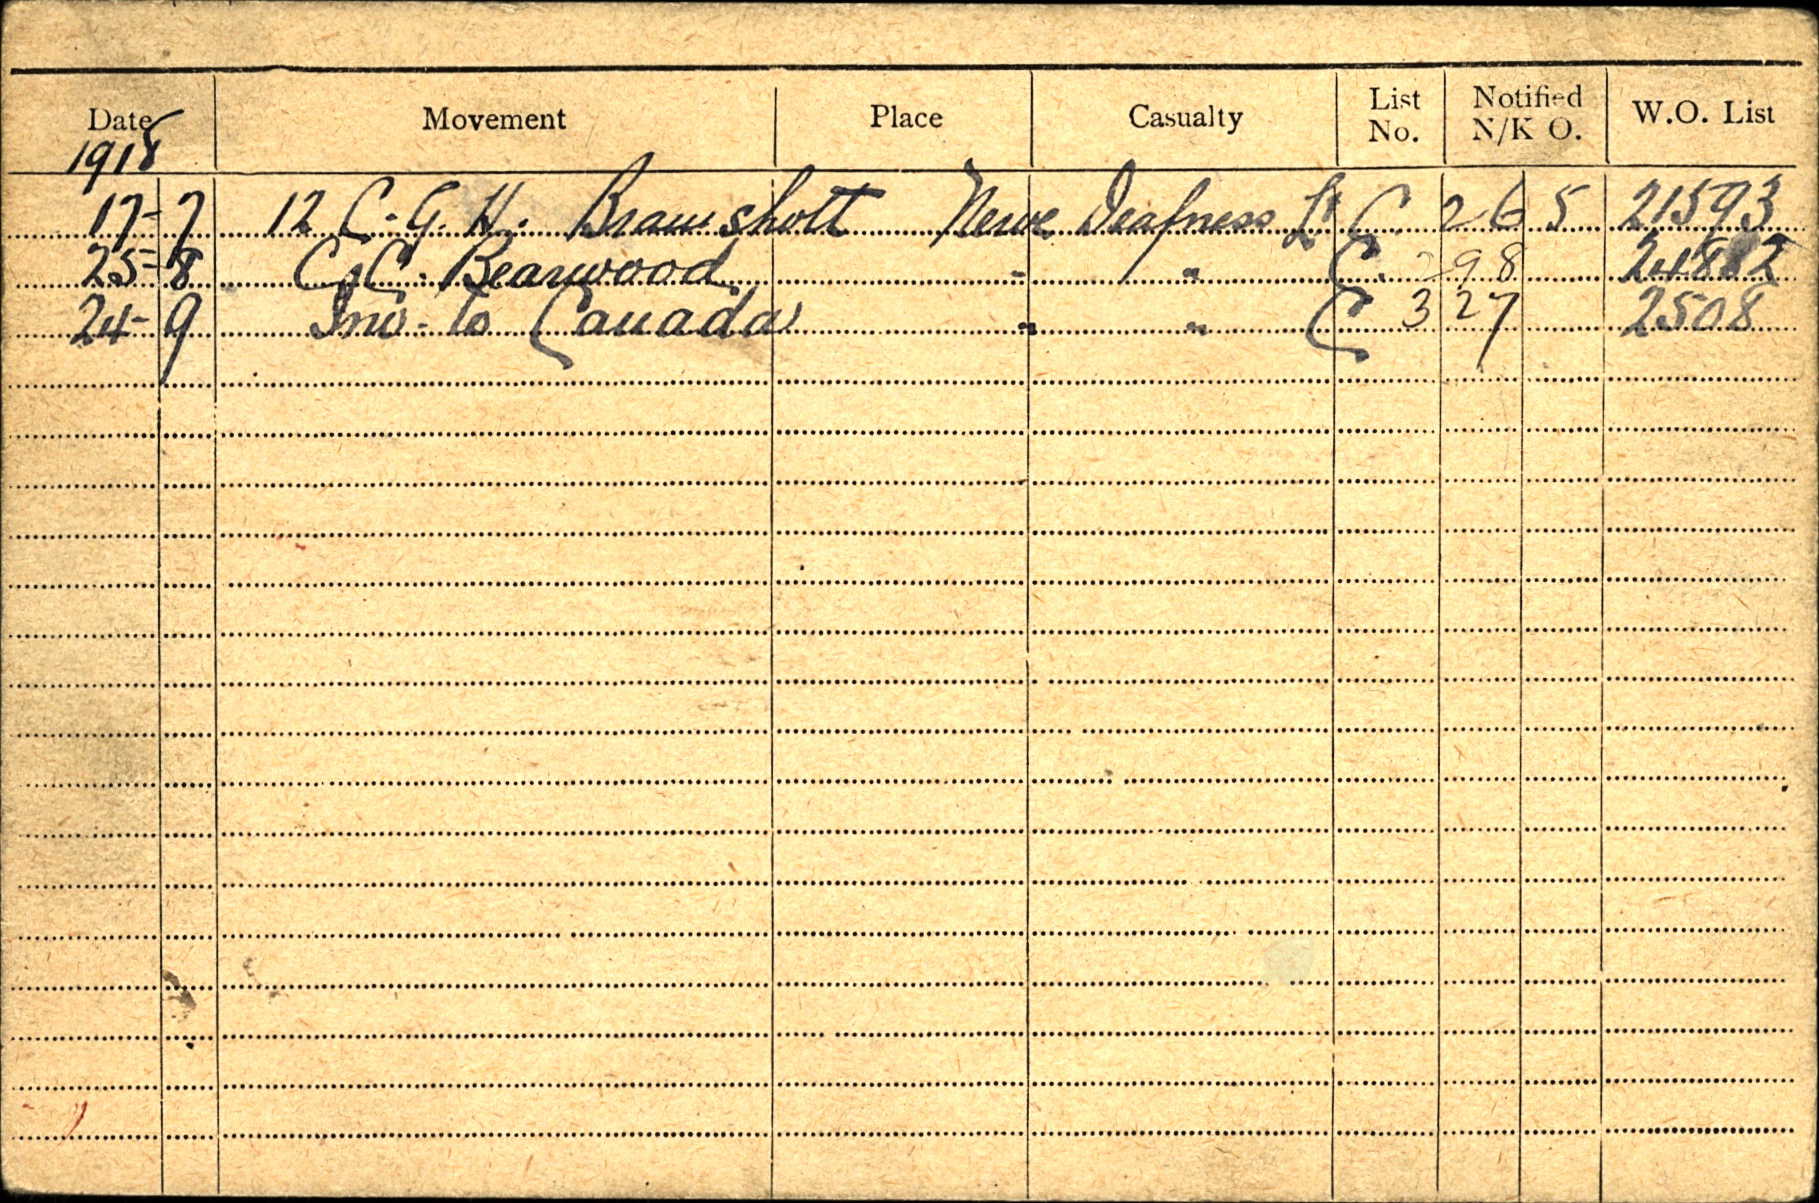 Date Movement Place Casualty List No. Notified N/K O. W.O. List
1918
17-7 12 C.G.H. Bramshott Nerve Deafness Lt C. 265 21593
25-8 C.C.C. Bearwood " " C. 298
24-9 Inv. to Canada " " C 327 2508